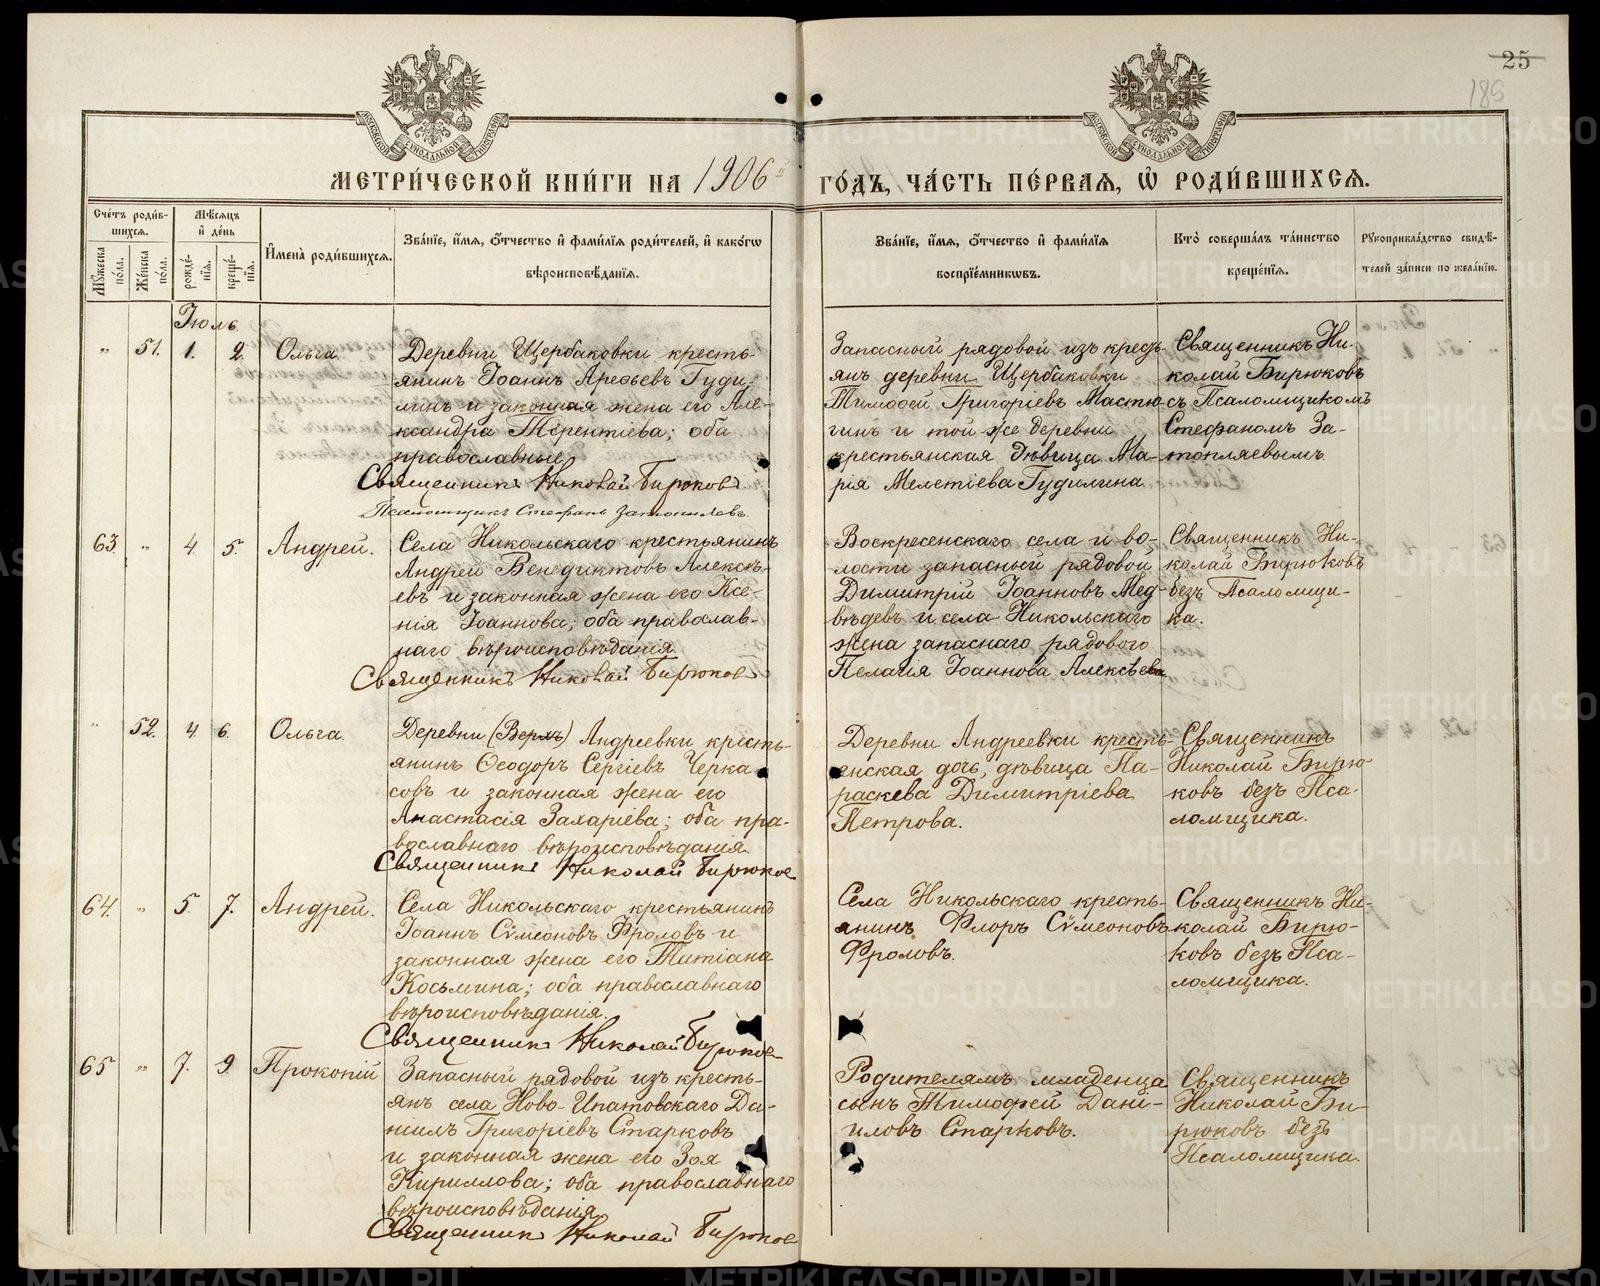 25
185
МЕТРИ́ЧЕСКОЙ КНИ́ГИ НА 1906й ГО́ДЪ, ЧА́СТЬ ПЕ́РВАЯ, Ѡ РОДИ́ВШИХСЯ.
Сче́тъ роди́в-
шихся.
Му́жеска по́ла.
Же́нска по́ла.
Мѣ́сяцъ
и де́нь
рожде́-
нїя.
креще́-
нїя.
И҆мена̀ роди́вшихся.
Зва́нїе, и҆́мя, ѻ҆́тчество и҆ фами́лїя роди́телей, и҆ како́гѡ
вѣроисповѣ́данїя.
Зва́нїе, и҆́мя, ѻ҆́тчество и҆ фами́лїя
воспрїе́мникѡвъ.
Кто̀ соверша́лъ та́инство
креще́нїя.
Рꙋкоприкла́дство свидѣ́-
телей за́писи по жела́нїю.
Іюль
" 51. 1. 2. Ольга.
Деревни Щербаковки кресть-
янинъ Іоаннъ Арефьевъ Гуди-
минъ и законная жена его Але-
ксандра Терентіева; оба
православные.
Священникъ Николай Бирюковъ
Псаломщикъ Стефанъ Затопляевъ.
Запасный рядовой изъ кресть-
янъ деревни Щербаковки
Тимофей Григоріевъ Мастю-
гинъ и той же деревни
крестьянская дѣвица Ма-
рія Мелетіева Гудимина.
Священникъ Ни-
колай Бирюковъ
съ Псаломщикомъ
Стефаномъ За-
топляевымъ.
63. " 4. 5. Андрей.
Села Никольскаго крестьянинъ
Андрей Венедиктовъ Алексѣ-
евъ и законная жена его Ксе-
нія Іоаннова; оба православ-
наго вѣроисповѣданія.
Священникъ Николай Бирюков
Воскресенскаго села и во-
лости запасный рядовой
Димитрій Іоанновъ Мед-
вѣдевъ и села Никольскаго
жена запаснаго рядового
Пелагія Іоаннова Алексѣева.
Священникъ Ни-
колай Бирюковъ
безъ Псаломщи-
ка.
" 52. 4. 6. Ольга.
Деревни (Верхъ) Андреевки кресть-
янинъ Ѳеодоръ Сергіевъ Черка-
совъ и законная жена его
Анастасія Захаріева; оба пра-
вославнаго вѣроисповѣданія.
Священникъ Николай Бирюков
Деревни Андреевки кресть-
янская дочь, дѣвица Па-
раскева Димитріева
Петрова.
Священникъ
Николай Бирю-
ковъ безъ Пса-
ломщика.
64. " 5. 7. Андрей.
Села Никольскаго крестьянинъ
Іоаннъ Сѵмеоновъ Фроловъ и
законная жена его Татіана
Косьмина; оба православнаго
вѣроисповѣданія.
Священникъ Николай Бирюков
Села Никольскаго кресть-
янинъ Флоръ Сѵмеоновъ
Фроловъ.
Священникъ Ни-
колай Бирю-
ковъ безъ Пса-
ломщика.
65 " 7. 9. Прокопій
Запасный рядовой изъ кресть-
янъ села Ново-Ипатовскаго Да-
ніилъ Григоріевъ Старковъ
и законная жена его Зоя
Кириллова; оба православнаго
вѣроисповѣданія.
Священникъ Николай Бирюков
Родителямъ младенца
сынъ Тимофей Дані-
иловъ Старковъ.
Священникъ
Николай Би-
рюковъ безъ
Псаломщика.
METRIKI.GASO-URAL.RU